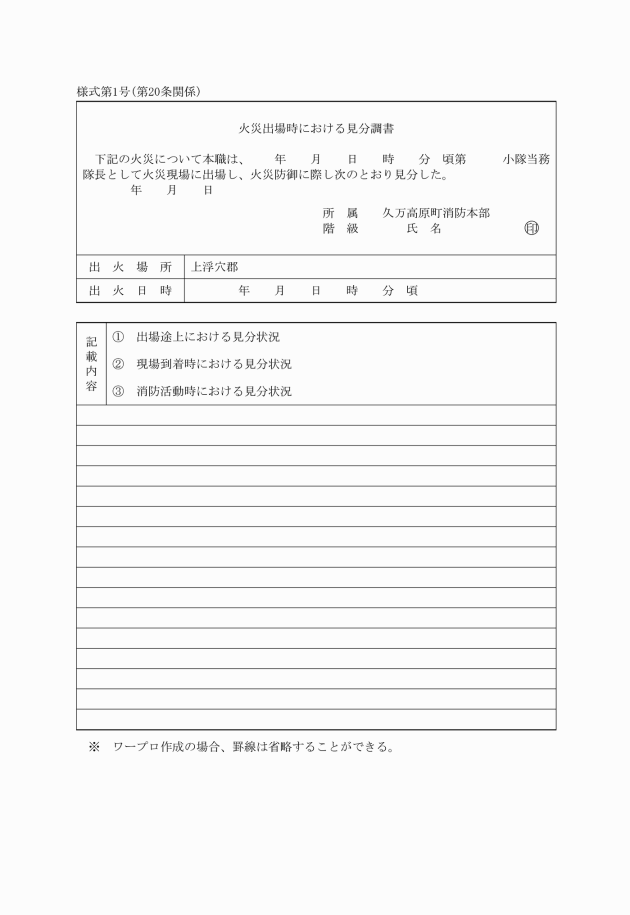 様式第1号(第20条関係)
火災出場時における見分調書
下記の火災について本職は、　　年　　月　　日　　時　　分　頃第　　　小隊当務
隊長として火災現場に出場し、火災防御に際し次のとおり見分した。
年　　月　　日
所　属　　久万高原町消防本部
階　級　　　　氏　名　　　　　　　㊞
出　火　場　所　上浮穴郡
出　火　日　時　　　　年　　月　　日　　時　　分　頃
記載内容
①　出場途上における見分状況
②　現場到着時における見分状況
③　消防活動時における見分状況
※　ワープロ作成の場合、罫線は省略することができる。